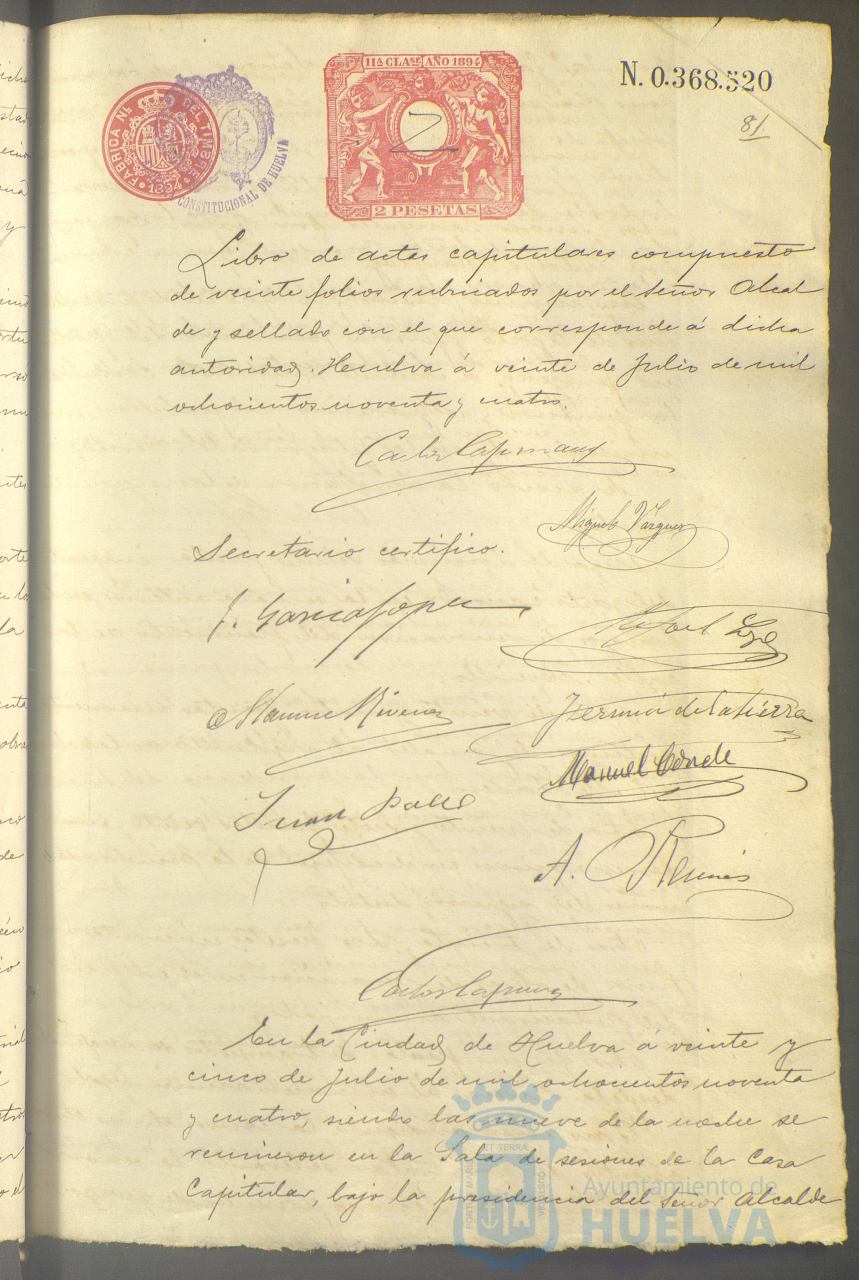 11ª CLASE AÑO 1894
N. 0.368.520
81
FABRICA NL. DEL TIMBRE
1894
CONSTITUCIONAL DE HUELVA
2 PESETAS
Libro de actas capitulares compuesto
de veinte folios rubricados por el Señor Alcal
de y sellado con el que corresponde á dicha
autoridad. Huelva á veinte de Julio de mil
ochocientos noventa y cuatro.
Carlos Capmany
Miguel Vázquez
Secretario certifico.
J. García López
Rafael
Manuel Rivera
Fermín de la Sierra
Manuel Conde
Juan
A.
Carlos Capmany
En la Ciudad de Huelva á veinte y
cinco de Julio de mil ochocientos noventa
y cuatro, siendo las nueve de la noche se
reunieron en la Sala de sesiones de la Casa
Capitular, bajo la presidencia del Señor Alcalde
Ayuntamiento de
HUELVA